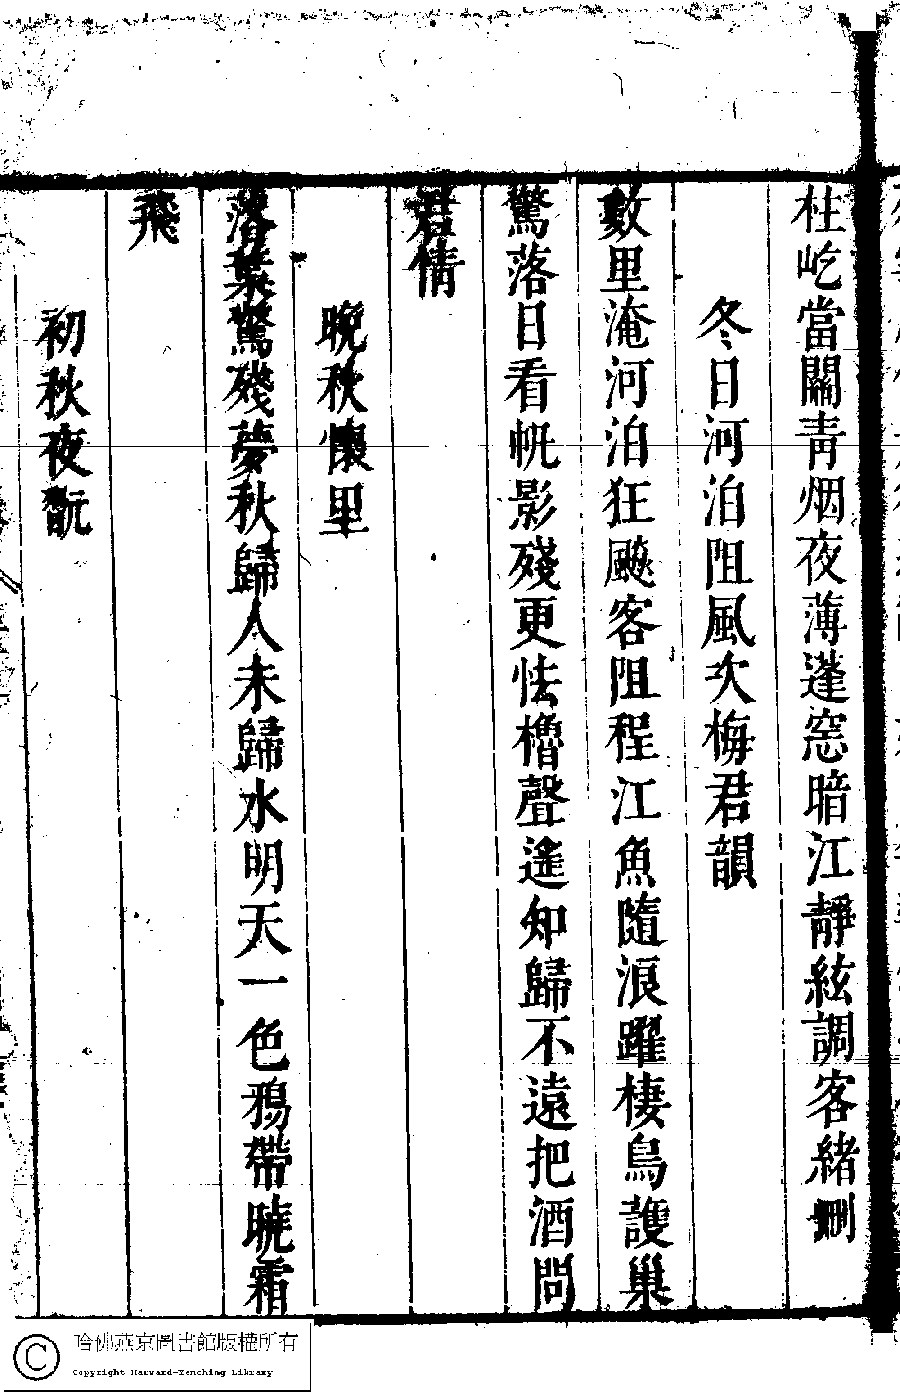 柱屹當關青烟夜薄蓬窓暗江靜絃調客緒刪
冬日河泊阻風次梅君韻
數里淹河泊狂颷客阻程江魚隨浪躍棲鳥護巢
驚落日看帆影殘更怯櫓聲遙知歸不遠把酒問
君情
晚秋懷里
落葉驚殘夢秋歸人未歸水明天一色鴉帶曉霜
飛
初秋夜酌
哈佛燕京圖書館版權所有
Copyright Harvard-Yenching Library